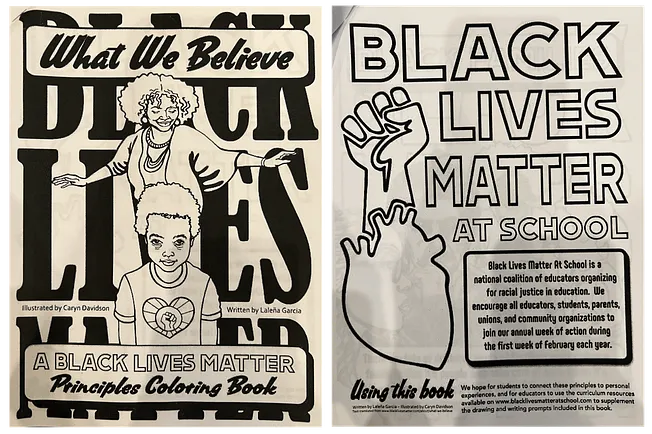 BLACK
What We Believe
LIVES
Illustrated by Caryn Davidson
Written by Laleña Garcia
MATTER
A BLACK LIVES MATTER
Principles Coloring Book
BLACK
LIVES
MATTER
AT SCHOOL
Black Lives Matter At School is a
national coalition of educators organizing
for racial justice in education. We
encourage all educators, students, parents,
unions, and community organizations to
join our annual week of action during
the first week of February each year.
Using this book
Written by Laleña Garcia - Illustrated by Caryn Davidson
We hope for students to connect these principles to personal
experiences, and for educators to use the curriculum resources
available on www.blacklivesmatteratschool.com to supplement
the drawing and writing prompts included in this book.